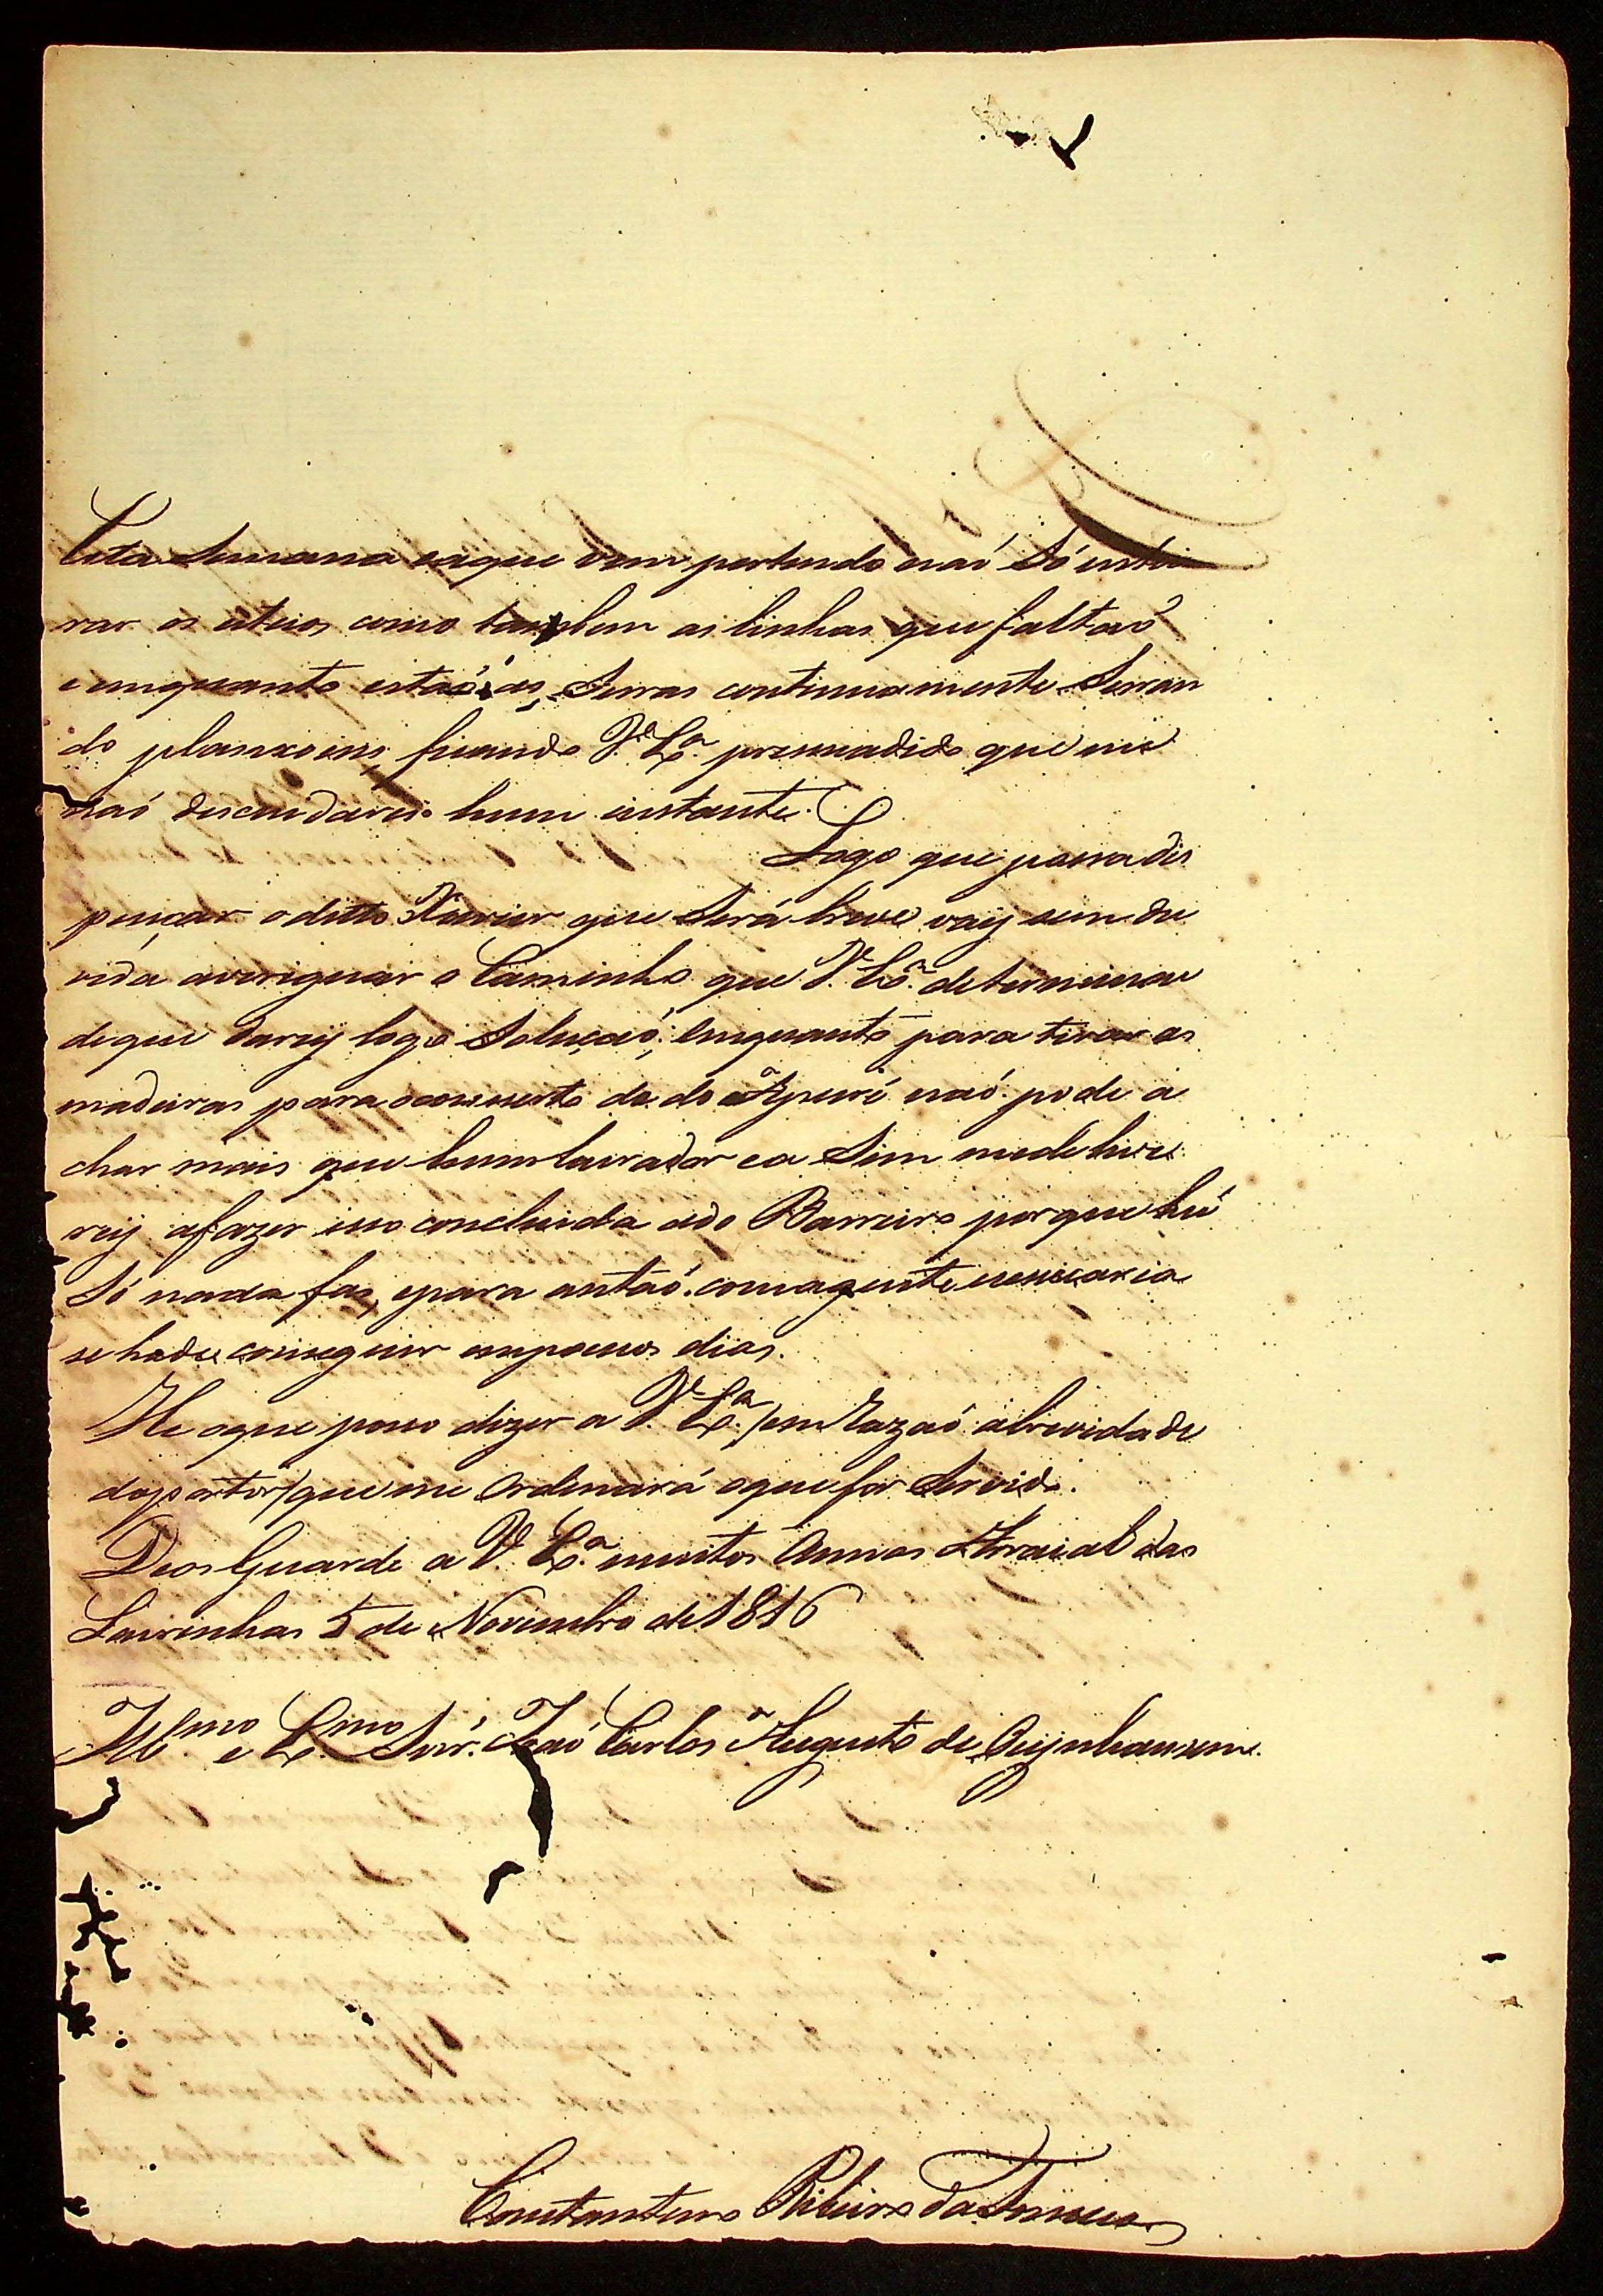 Esta Semana eaque vem pertendo naó Só intei
rar os esteios como tambem as linhas que faltaó
eemquanto estaó as Serras continuamente Serran
do planxoins, ficando V. Exª. presuadido que me
naó descuidarei hum instante.
Logo que possa dis
pençar o ditto Xavier que Será breve vay sem du
vida averiguar o Caminho que V. Exª. determinou
deque darey logo Soluçaó; emquanto para tirar as
madeiras para oconserto do do Aricá naó pode a
char mais que humlavrador ea Sim
rey afazer isso concluida ado Barreiro porque hú
Só nada fas, epara antaó comagente necessaria
se hade conseguir empoucos dias.
He oque posso dizer a V. Exª. /emRazaó abrevidade
doportor/ que me Ordenará oque for Servido.
Deos Guarde a V. Exª. muitos Annos Arraial das
Lavrinhas 5 de Novembro de 1816
Illmo. e Exmo. Snr. Joaó Carlos Augusto de Oeynhaussem.
Constantino Ribeiro da Fonseca